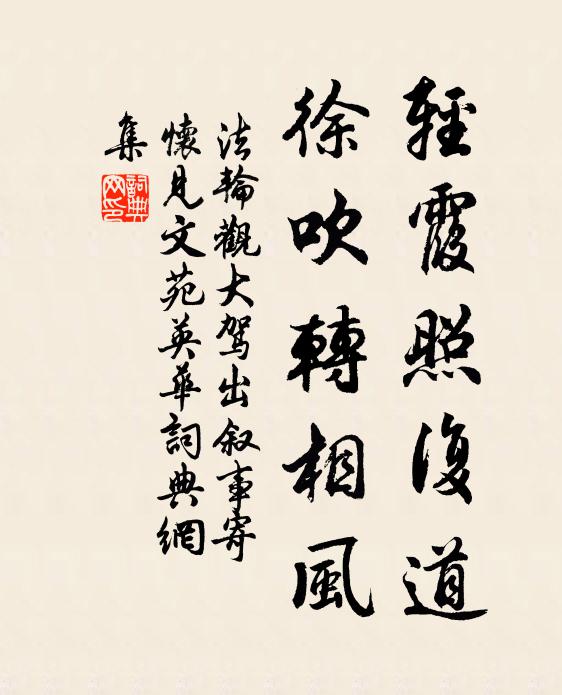 輕霞照復道
徐吹轉相風
法輪觀大駕出叙事寄
懷見文苑英華詞典網
集
詞典網印